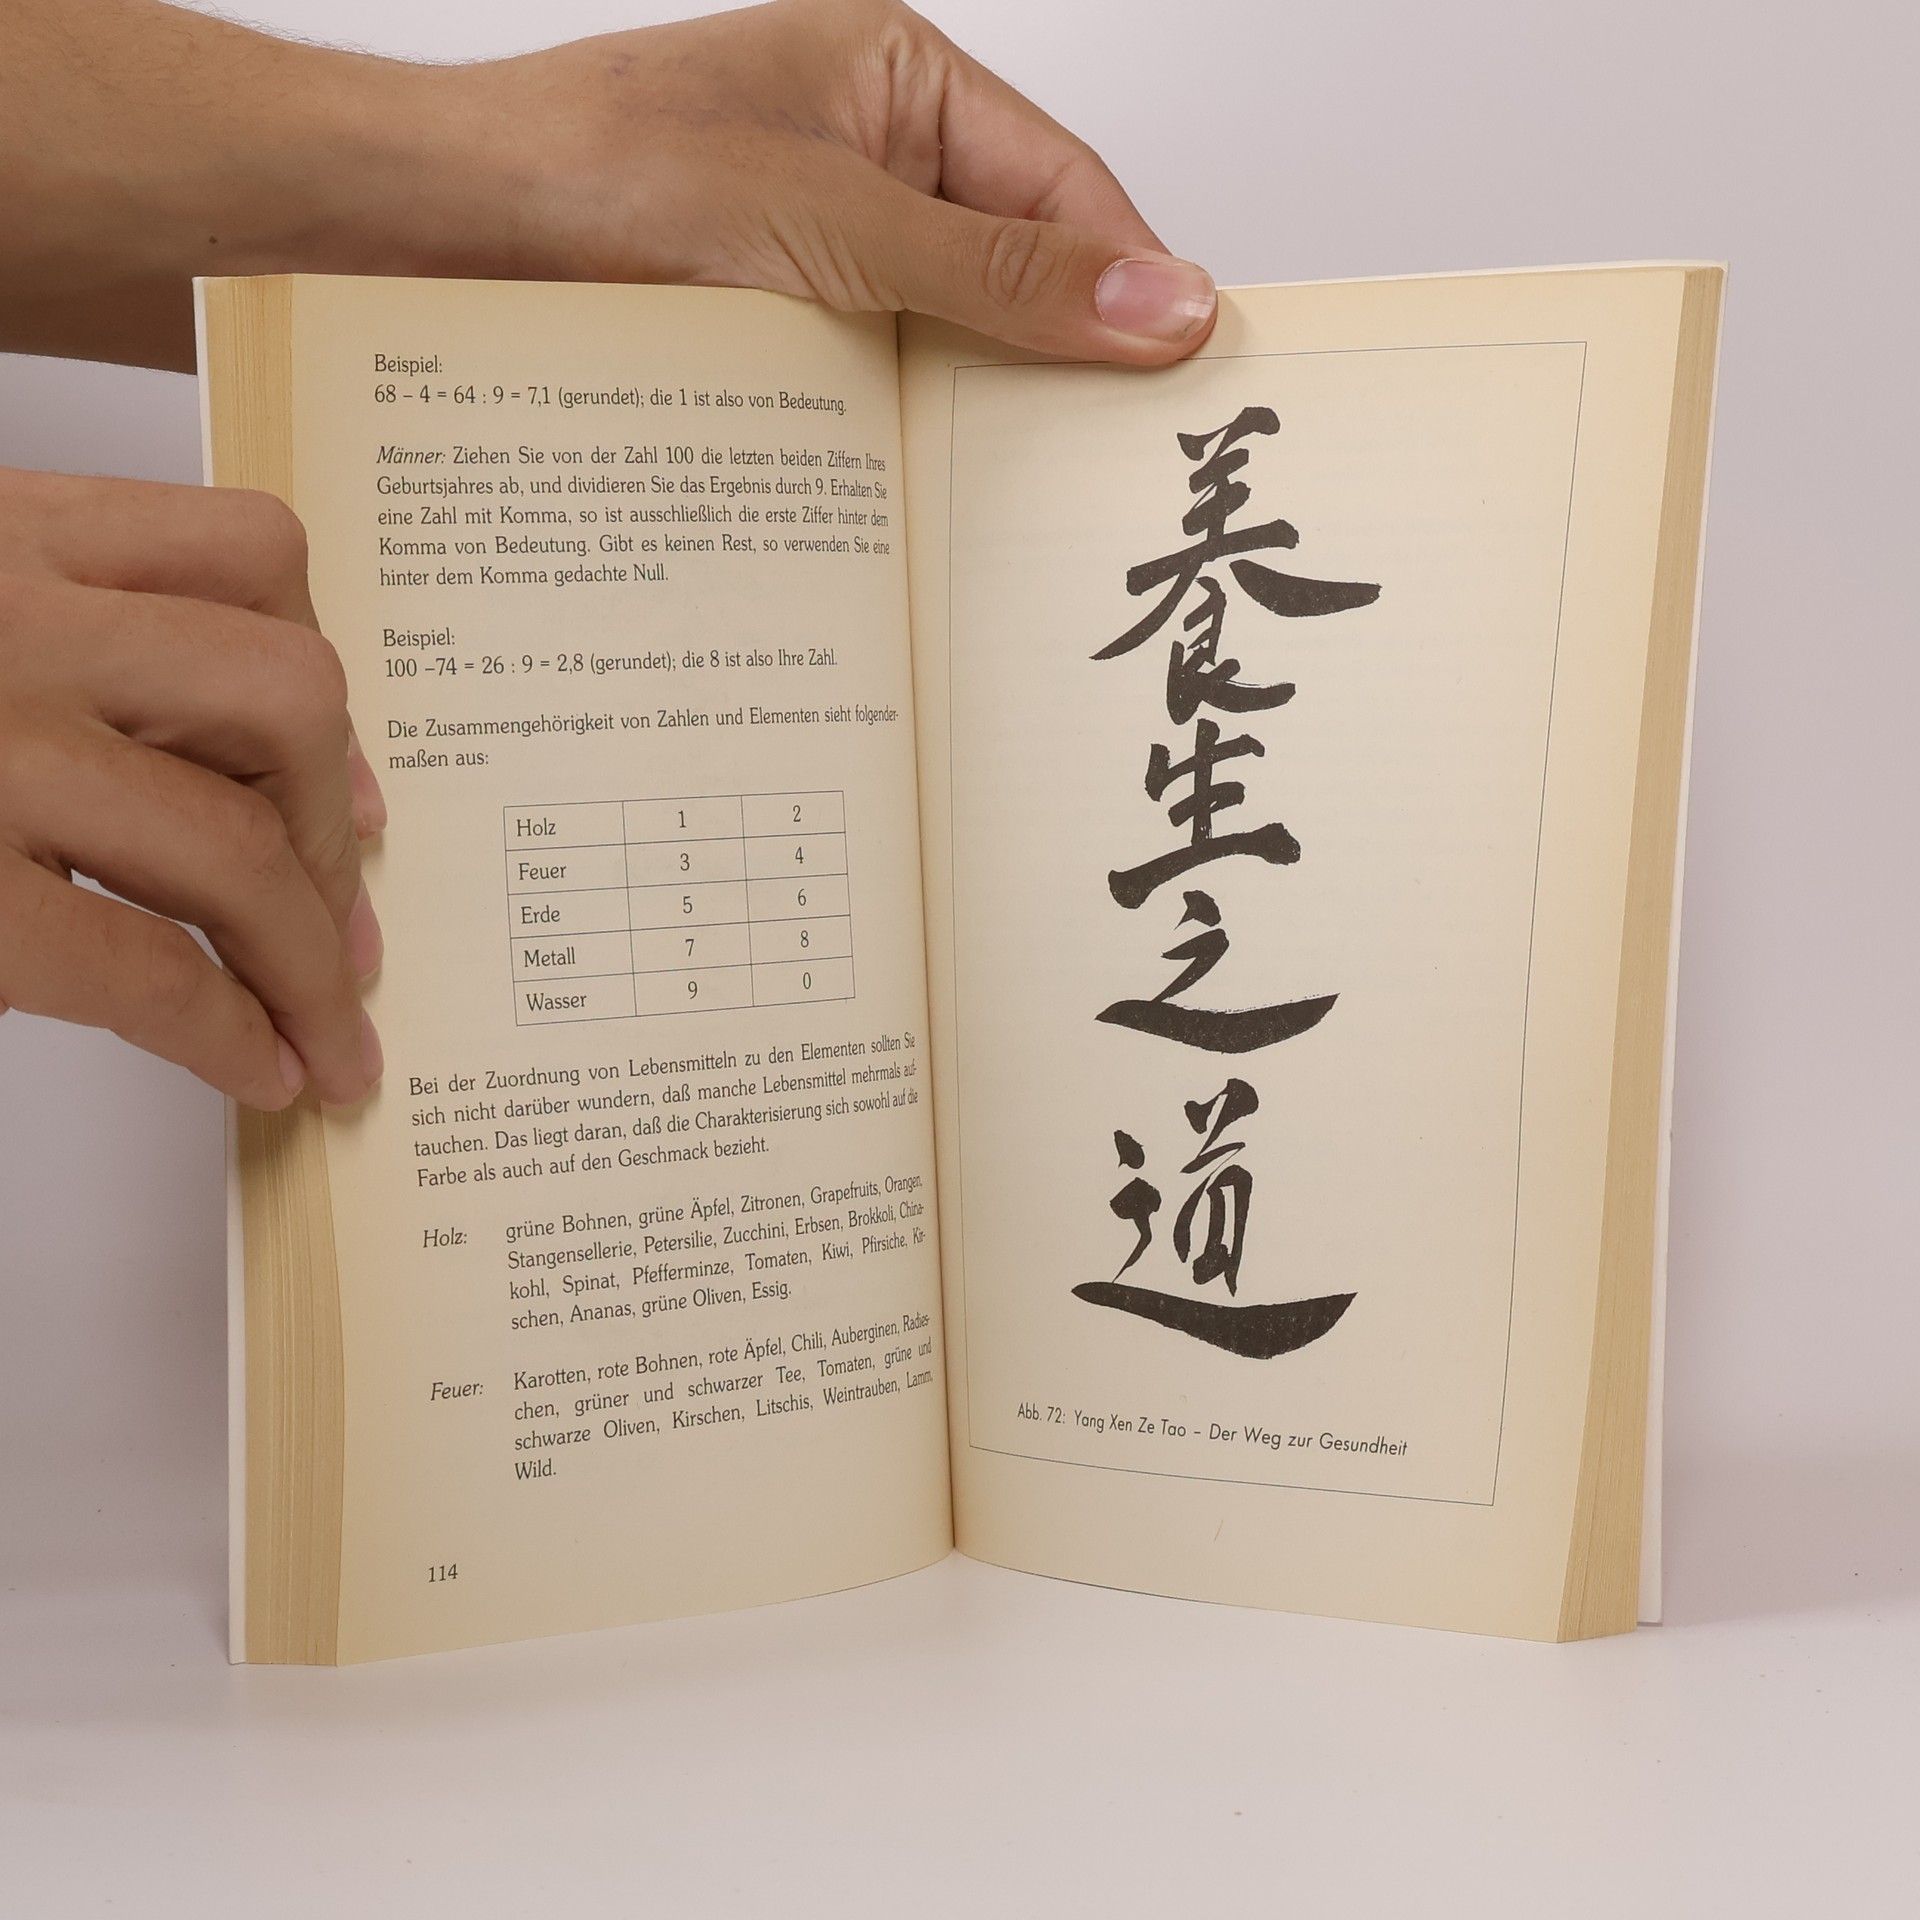 Beispiel:
68 – 4 = 64 : 9 = 7,1 (gerundet); die 1 ist also von Bedeutung.
Männer: Ziehen Sie von der Zahl 100 die letzten beiden Ziffern Ihres
Geburtsjahres ab, und dividieren Sie das Ergebnis durch 9. Erhalten Sie
eine Zahl mit Komma, so ist ausschließlich die erste Ziffer hinter dem
Komma von Bedeutung. Gibt es keinen Rest, so verwenden Sie eine
hinter dem Komma gedachte Null.
Beispiel:
100 –74 = 26 : 9 = 2,8 (gerundet); die 8 ist also Ihre Zahl.
Die Zusammengehörigkeit von Zahlen und Elementen sieht folgender-
maßen aus:
Holz 1 2
Feuer 3 4
Erde 5 6
Metall 7 8
Wasser 9 0
Bei der Zuordnung von Lebensmitteln zu den Elementen sollten Sie
sich nicht darüber wundern, daß manche Lebensmittel mehrmals auf-
tauchen. Das liegt daran, daß die Charakterisierung sich sowohl auf die
Farbe als auch auf den Geschmack bezieht.
Holz: grüne Bohnen, grüne Äpfel, Zitronen, Grapefruits, Orangen,
Stangensellerie, Petersilie, Zucchini, Erbsen, Brokkoli, China-
kohl, Spinat, Pfefferminze, Tomaten, Kiwi, Pfirsiche, Kir-
schen, Ananas, grüne Oliven, Essig.
Feuer: Karotten, rote Bohnen, rote Äpfel, Chili, Auberginen, Radies-
chen, grüner und schwarzer Tee, Tomaten, grüne und
schwarze Oliven, Kirschen, Litschis, Weintrauben, Lamm,
Wild.
114
養生之道
Abb. 72: Yang Xen Ze Tao – Der Weg zur Gesundheit